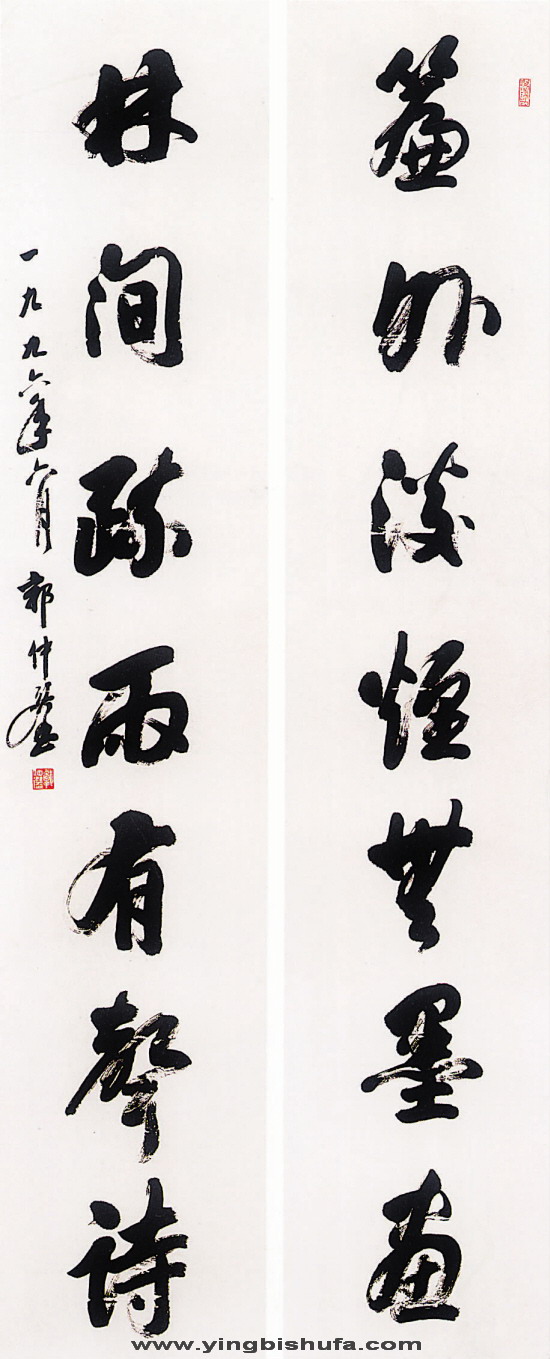 簾外淡煙無墨畫
林間疏雨有聲詩
一九九六年六月 郭仲選
www.yingbishufa.com